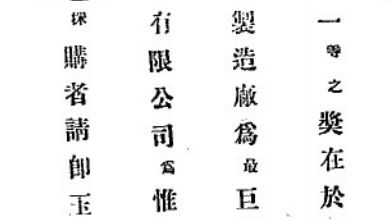 一等之獎在於
製造廠爲最巨
有限公司爲惟
採購者請卽玉